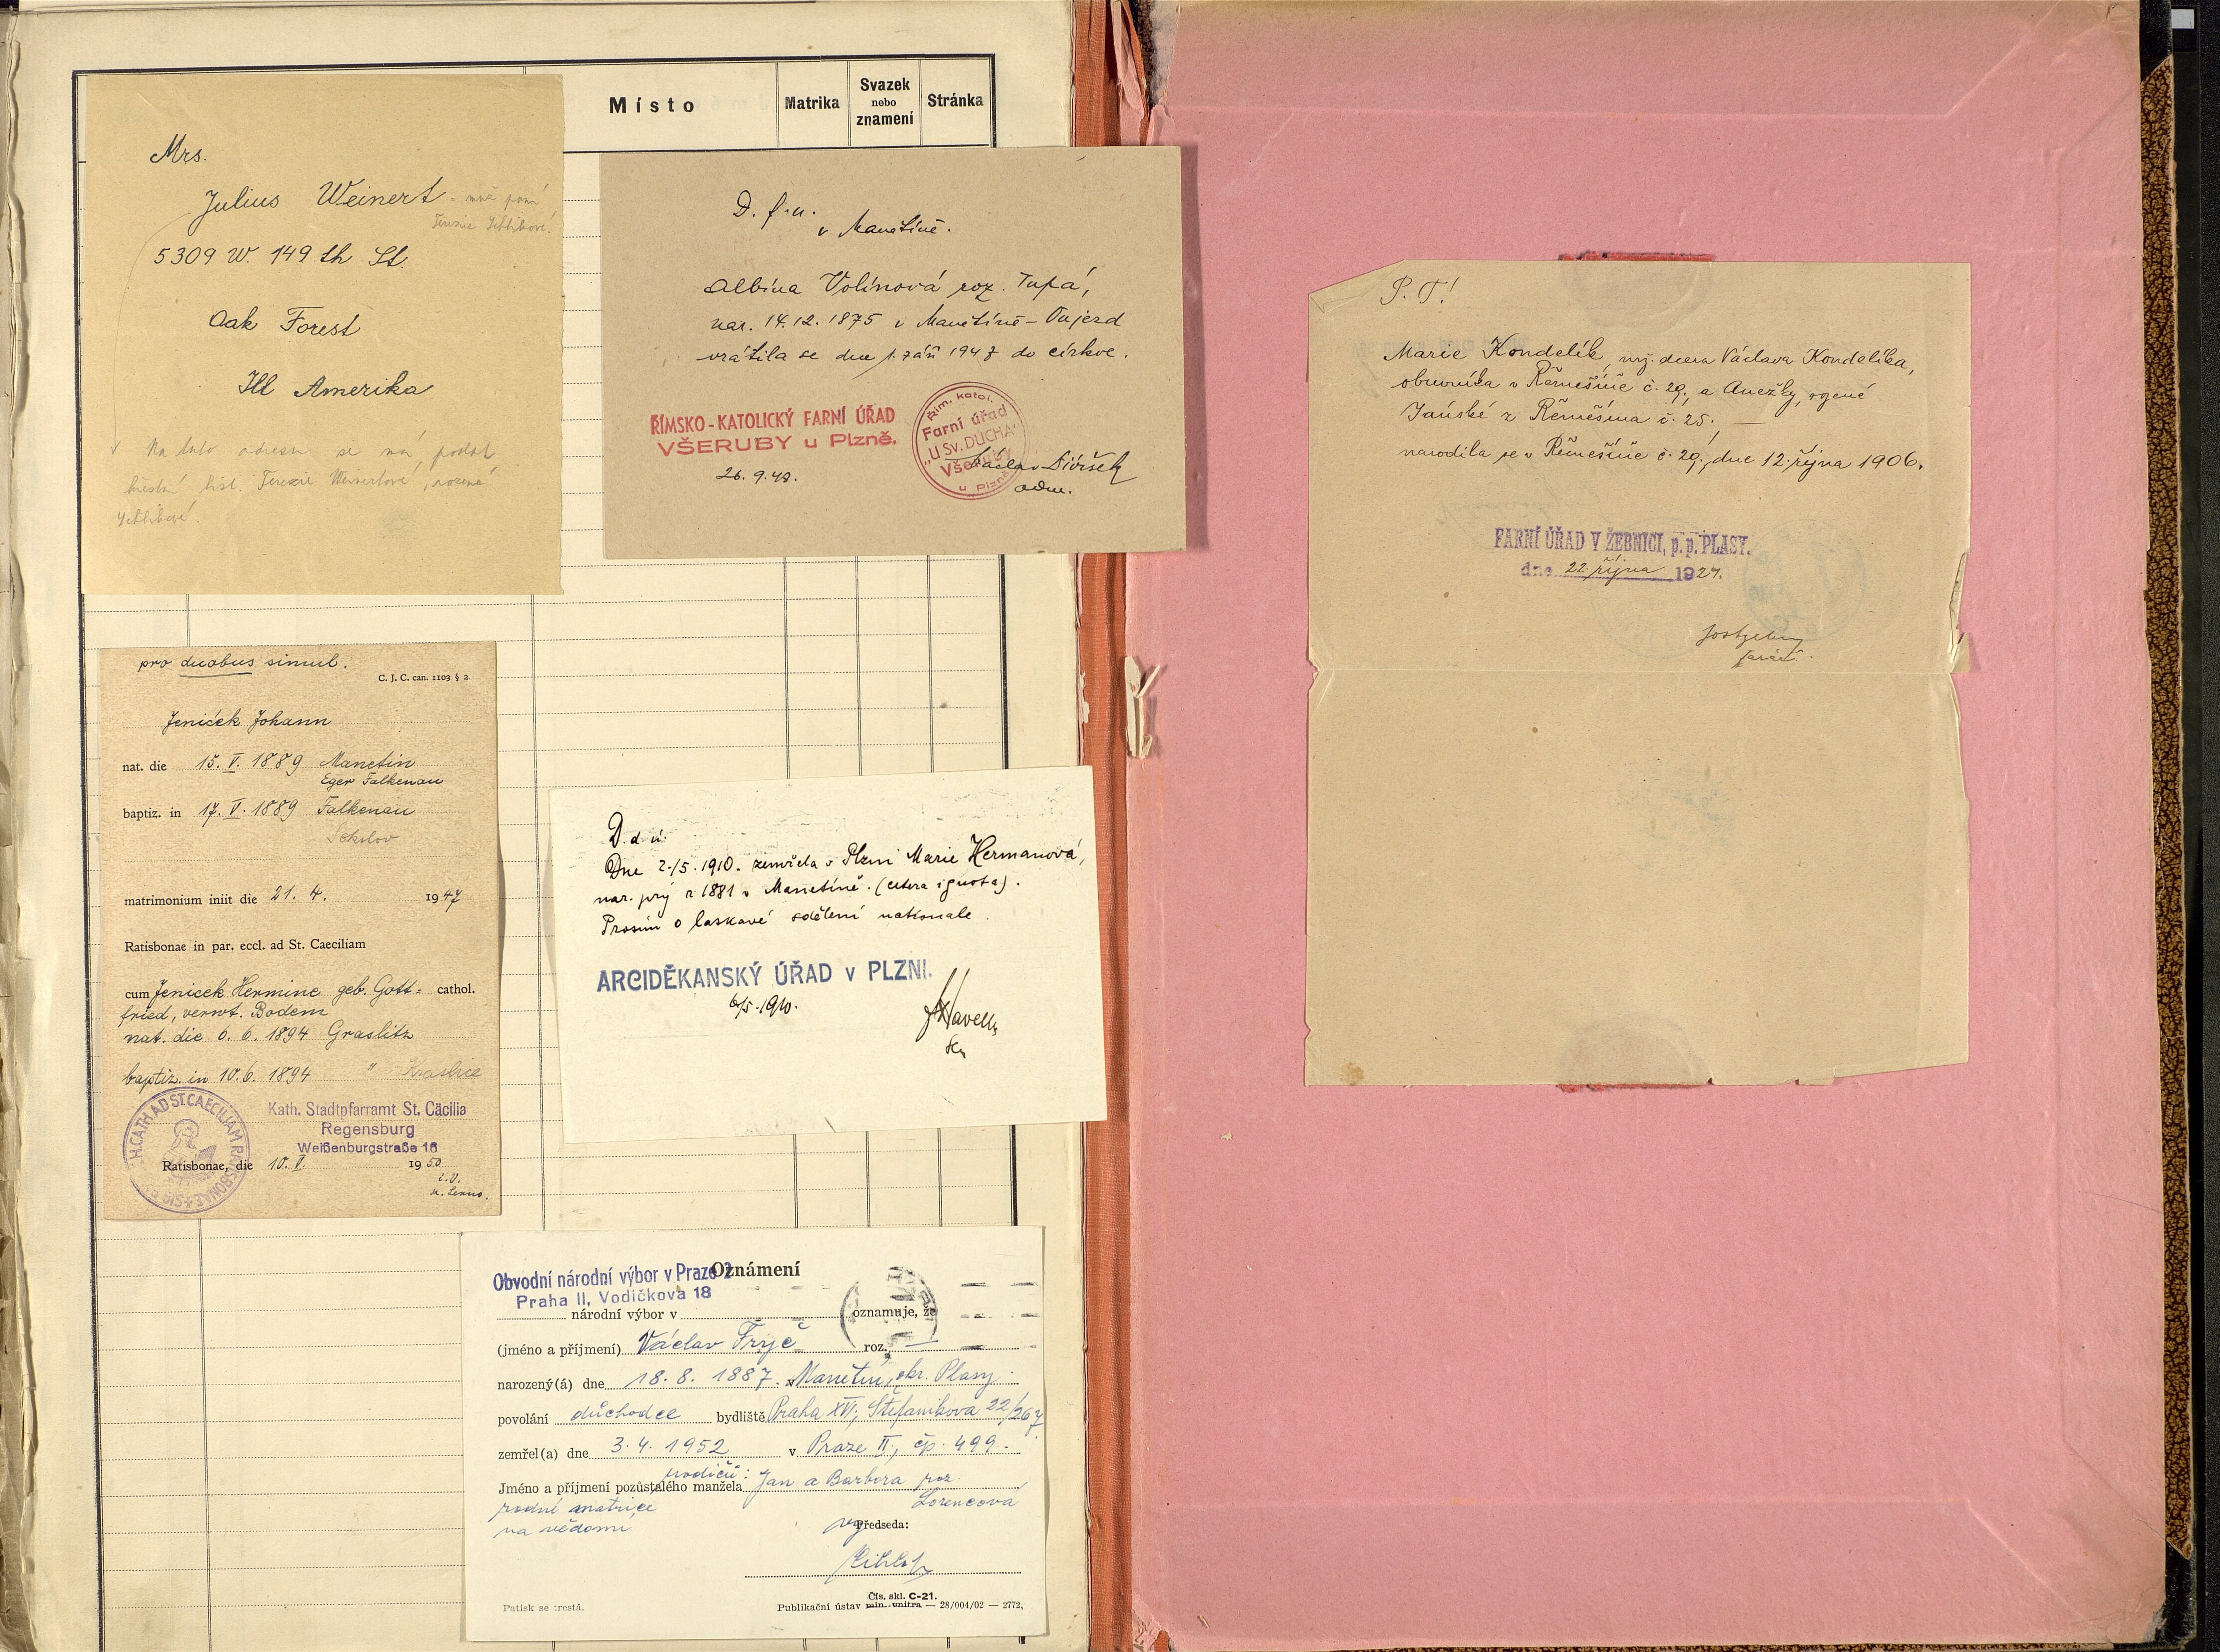 Místo
Matrika
Svazek
nebo
znamení
Stránka
Mrs.
Julius Weinert - muž paní
Terezie
5309 W. 149 th St.
Oak Forest
Ill Amerika
Na tuto adresu se má poslat
křestní list. Terezie Weinertové, rozené
D. f. ú.
v Manětíně.
Albína Volínová roz. Tupá,
nar. 14.12.1875 v Manětíně - Oujezd
vrátila se dne 1. září 1947 do církve.
ŘÍMSKO-KATOLICKÝ FARNÍ ÚŘAD
VŠERUBY u Plzně.
Řím. katol.
Farní úřad
„U Sv. DUCHA"
Všeruby
u Plzně
26. 9. 47.
Václav
adm.
pro duobus simul.
C. J. C. can. 1103 § 2
Jeniček Johann
nat. die 15. V. 1889 Manetin
Eger Falkenau
baptiz. in 17. V. 1889 Falkenau
Sokolov
matrimonium iniit die 21. 4. 1947
Ratisbonae in par. eccl. ad St. Caeciliam
cum Jenicek Hermine geb. Gott= cathol.
fried, verwt. Bodem
nat. die 6. 6. 1894 Graslitz
baptiz. in 10. 6. 1894 " Kraslice
Kath. Stadtpfarramt St. Cäcilia
Regensburg
Weißenburgstraße 16
Ratisbonae, die 10. V. 1950
D. d. ú.
Dne 2./5. 1910. zemřela v Plzni Marie Hermanová,
nar. prý r 1881 v Manetíně. (cetera ignota).
Prosím o laskavé sdělení nationale.
ARCIDĚKANSKÝ ÚŘAD v PLZNI.
6/5. 1910.
Obvodní národní výbor v Praze 2
Oznámení
Praha II, Vodičkova 18
národní výbor v oznamuje, že
(jméno a příjmení) Václav Fryč roz. —
narozený(á) dne 18. 8. 1887. v Manětín, okr. Plasy
povolání důchodce bydliště Praha XVI, Štefanikova 22/267
zemřel(a) dne 3. 4. 1952 v Praze II, čp. 499.
rodičů:
Jméno a příjmení pozůstalého manžela Jan a Barbora roz.
rodné matrice Lorencová
na vědomí
Předseda:
Čís. skl. C-21.
Patisk se trestá.
Publikační ústav min. vnitra — 28/004/02 — 2772,
P. T!
Marie Kondelík, mž. dcera Václava Kondelíka,
obuvníka v Řemešíně č. 29, a Anežky, rozené
Janské z Řemešína č. 25, —
narodila se v Řemešíně č. 29, dne 12. října 1906.
FARNÍ ÚŘAD V ŽEBNICI, p. p. PLASY.
dne 22. října 1927.
farář.